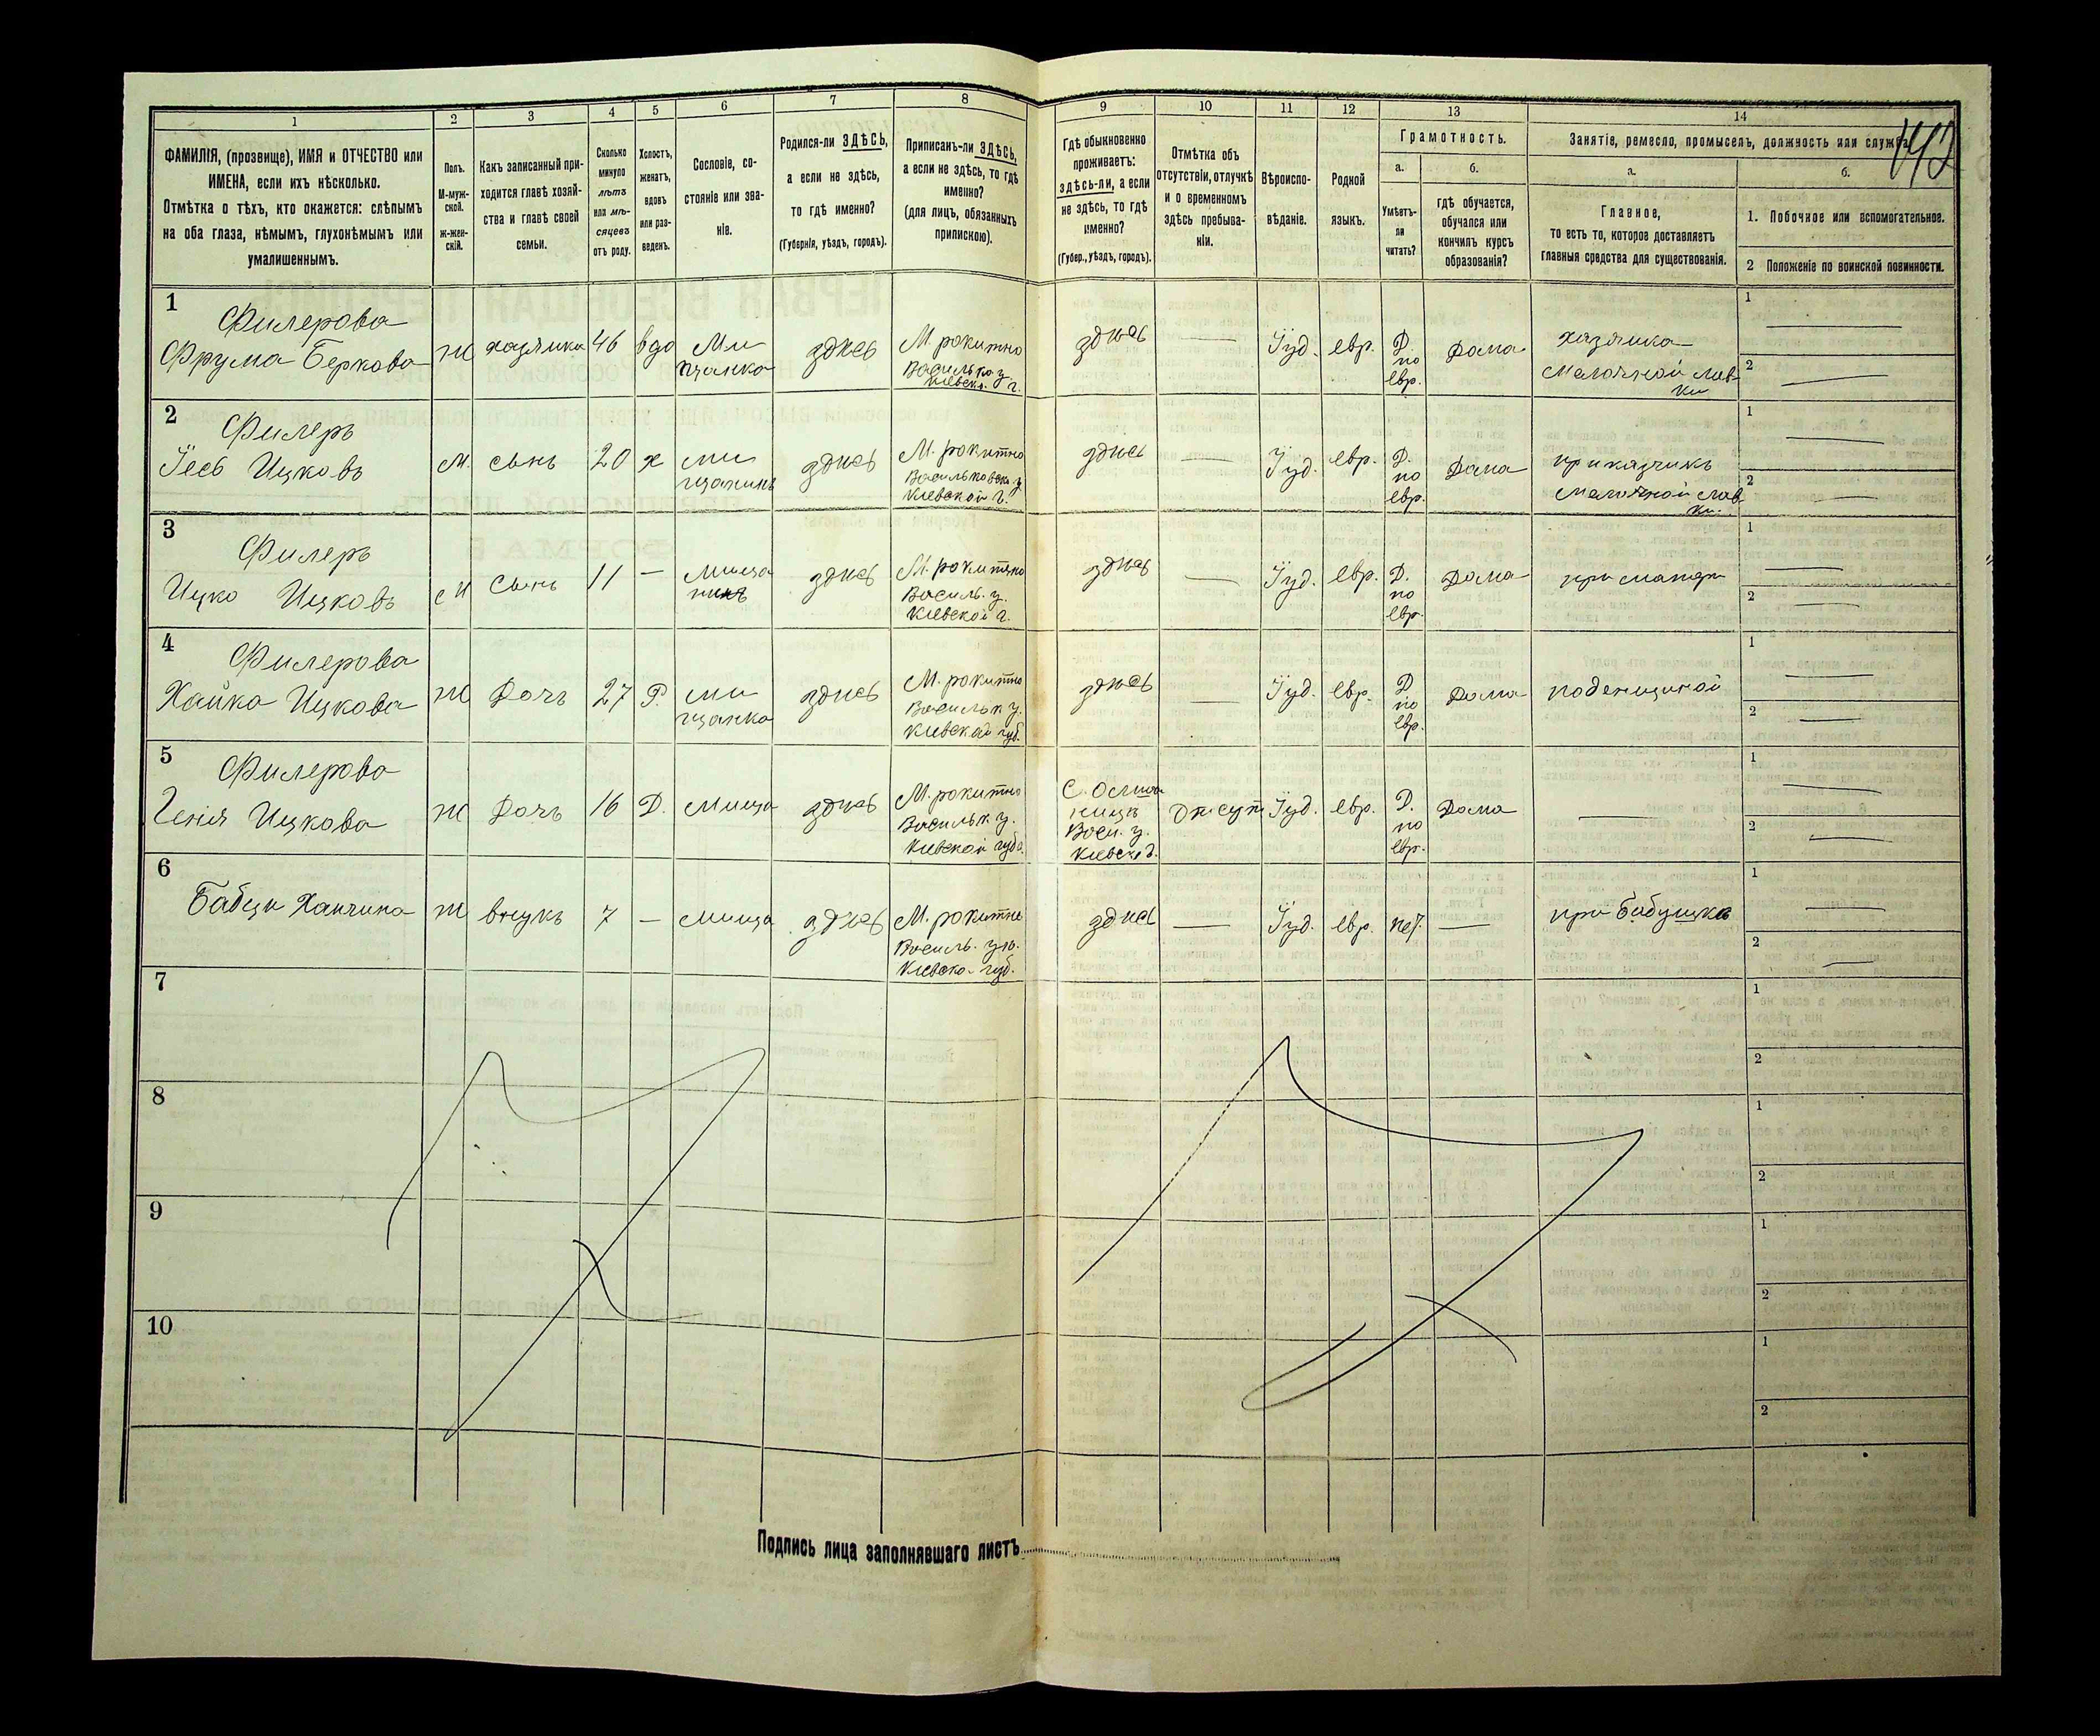 1 2 3 4 5 6 7 8 9 10 11 12 13 14
ФАМИЛІЯ, (прозвище), ИМЯ и ОТЧЕСТВО или
ИМЕНА, если ихъ нѣсколько.
Отмѣтка о тѣхъ, кто окажется: слѣпымъ
на оба глаза, нѣмымъ, глухонѣмымъ или
умалишеннымъ.
Полъ.
М-муж-
ской.
ж-жен-
скій.
Какъ записанный при-
ходится главѣ хозяй-
ства и главѣ своей
семьи.
Сколько
минуло
лѣтъ
или мѣ-
сяцевъ
отъ роду.
Холостъ,
женатъ,
вдовъ
или раз-
веденъ.
Сословіе, со-
стояніе или зва-
ніе.
Родился-ли ЗДѢСЬ,
а если не здѣсь,
то гдѣ именно?
(Губернія, уѣздъ, городъ).
Приписанъ-ли ЗДѢСЬ,
а если не здѣсь, то гдѣ
именно?
(для лицъ, обязанныхъ
припискою).
Гдѣ обыкновенно
проживаетъ:
здѣсь-ли, а если
не здѣсь, то гдѣ
именно?
(Губер., уѣздъ, городъ).
Отмѣтка объ
отсутствіи, отлучкѣ
и о временномъ
здѣсь пребыва-
ніи.
Вѣроиспо-
вѣданіе.
Родной
языкъ.
Грамотность.
а.
Умѣетъ-
ли
читать?
б.
гдѣ обучается,
обучался или
кончилъ курсъ
образованія?
Занятіе, ремесло, промыселъ, должность или служба
а.
Главное,
то есть то, которое доставляетъ
главныя средства для существованія.
б.
1. Побочное или вспомогательное.
2 Положеніе по воинской повинности.
1
Филерова
Фрума Беркова
Ж
хазяика
46
вдо
Ми
щанка
здѣсь
М. рокитно
Васильк у.
Кіевск. г.
здѣсь
—
Іуд.
евр.
Д.
по
евр.
Дома
хазяика
мелочной лав
ки
1 —
2 —
2
Филеръ
Іось Ицковъ
М.
сынъ
20
х
ми
щанинъ
здѣсь
М. рокитно
Васильковск. у
Кіевской г.
здѣсь
—
Іуд.
евр.
Д.
по
евр.
Дома
приказчикъ
мелочной лав
ки.
1 —
2 —
3
Филеръ
Ицко Ицковъ
М
Сынъ
11
—
мища
нинъ
здѣсь
М. рокитно
Василь. у.
Кіевской г.
здѣсь
—
Іуд.
евр.
Д.
по
евр.
Дома
при матери
1 —
2 —
4
Филерова
Хайка Ицкова
Ж
Дочь
27
Р.
ми
щанка
здѣсь
М. рокитно
Васильк у.
Кіевской губ.
здѣсь
—
Іуд.
евр.
Д
по
евр.
Дома
поденщиной
1 —
2 —
5
Филерова
Геня Ицкова
Ж
Дочь
16
Д.
мища
здѣсь
М. рокитно
Васильк у.
Кіевской губ.
Вас. у.
Отсут
Іуд.
евр.
Д.
по
евр.
Дома
—
1 —
2 —
6
Ж
внукъ
7
—
мища
здѣсь
М. рокитно
Василь. у.
Кіевско. губ.
здѣсь
—
Іуд.
евр.
нет.
—
при бабушкѣ
1 —
2 —
7
1
2
8
1
2
9
1
2
10
1
2
Подпись лица заполнявшаго листъ